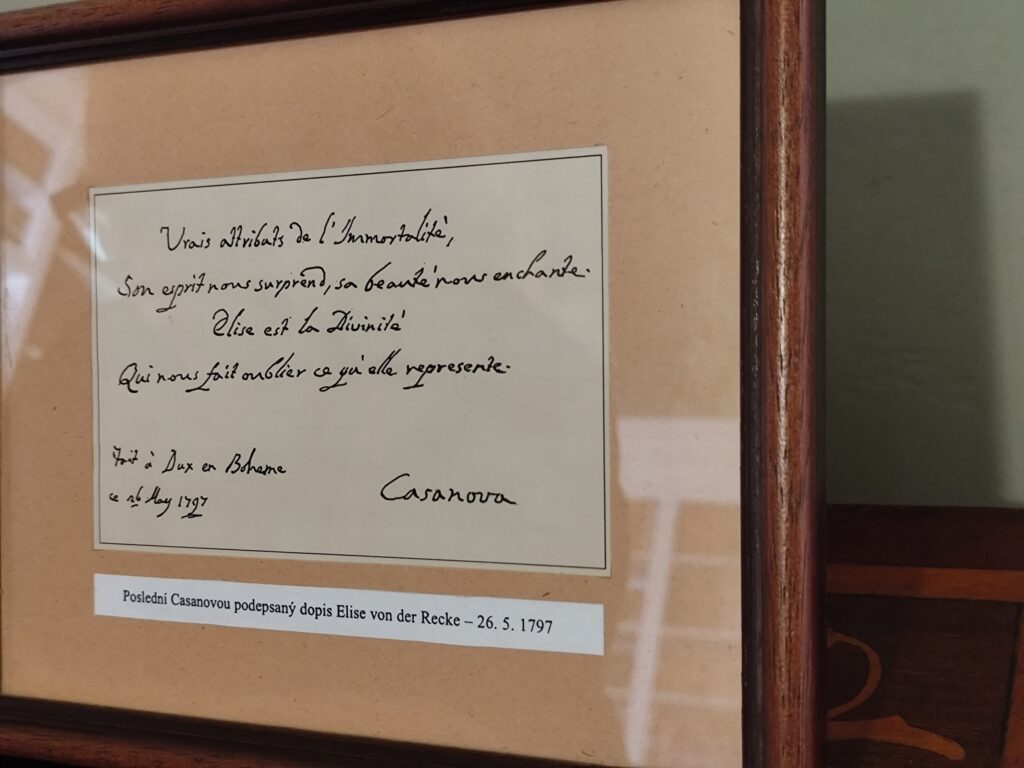 Vrais attributs de l'Immortalité,
Son esprit nous surprend, sa beauté nous enchante.
Elise est la Divinité
Qui nous fait oublier ce qu'elle represente.
Fait à Dux en Boheme
ce 26 May 1797
Casanova
Poslední Casanovou podepsaný dopis Elise von der Recke – 26. 5. 1797